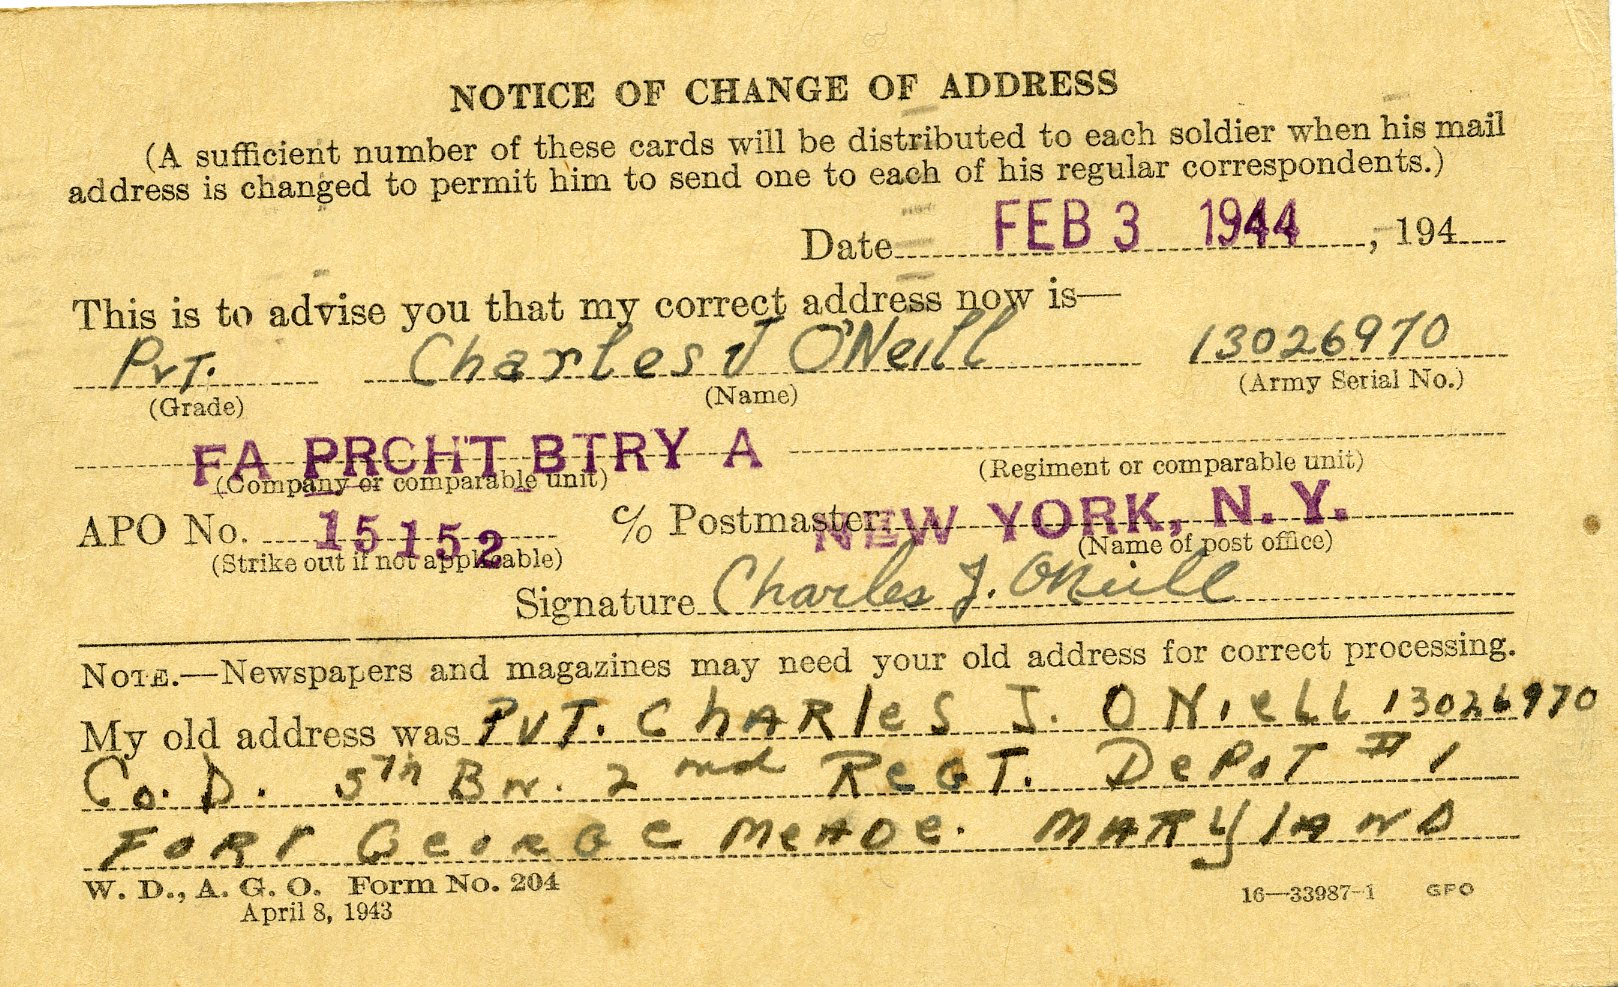 NOTICE OF CHANGE OF ADDRESS
(A sufficient number of these cards will be distributed to each soldier when his mail
address is changed to permit him to send one to each of his regular correspondents.)
Date FEB 3 1944, 194
This is to advise you that my correct address now is—
Pvt. Charles J O'Neill 13026970
(Grade) (Name) (Army Serial No.)
FA PRCHT BTRY A
(Company or comparable unit) (Regiment or comparable unit)
APO No. 15152 c/o Postmaster NEW YORK, N.Y.
(Strike out if not applicable) (Name of post office)
Signature Charles J. O'Neill
NOTE.—Newspapers and magazines may need your old address for correct processing.
My old address was PVT. CHARles J. O Niell 13026970
Co. D. 5th BN. 2nd ReGT. DePoT #1
FORT GeORGe MeADe. MARYlAND
W. D., A. G. O. Form No. 204
April 8, 1943
16—33987-1 GPO